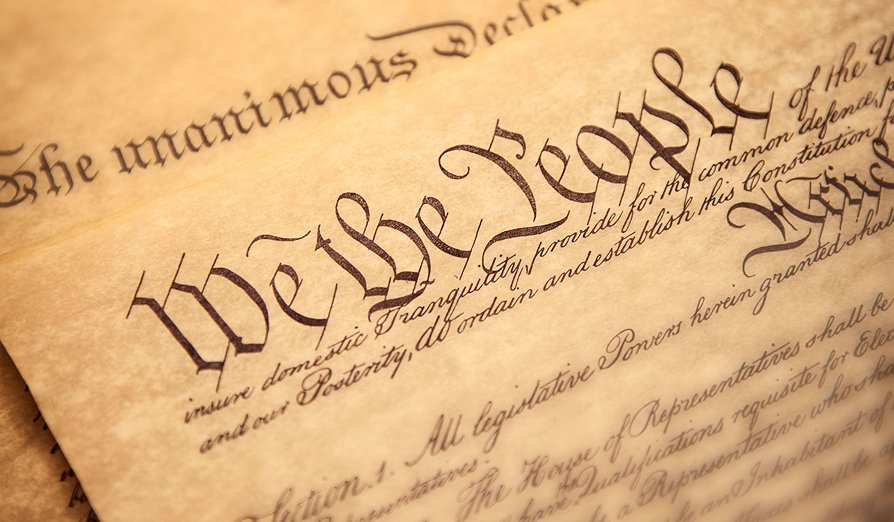 The unanimous Decla
We the People of the U
insure domestic Tranquility, provide for the common defence, p
and our Posterity, do ordain and establish this Constitution f
Articl
Section 1. All legislative Powers herein granted shal
Representatives.
The House of Representatives shall be
have Qualifications requisite for Elec
a Representative who sha
an Inhabitant of
shall be